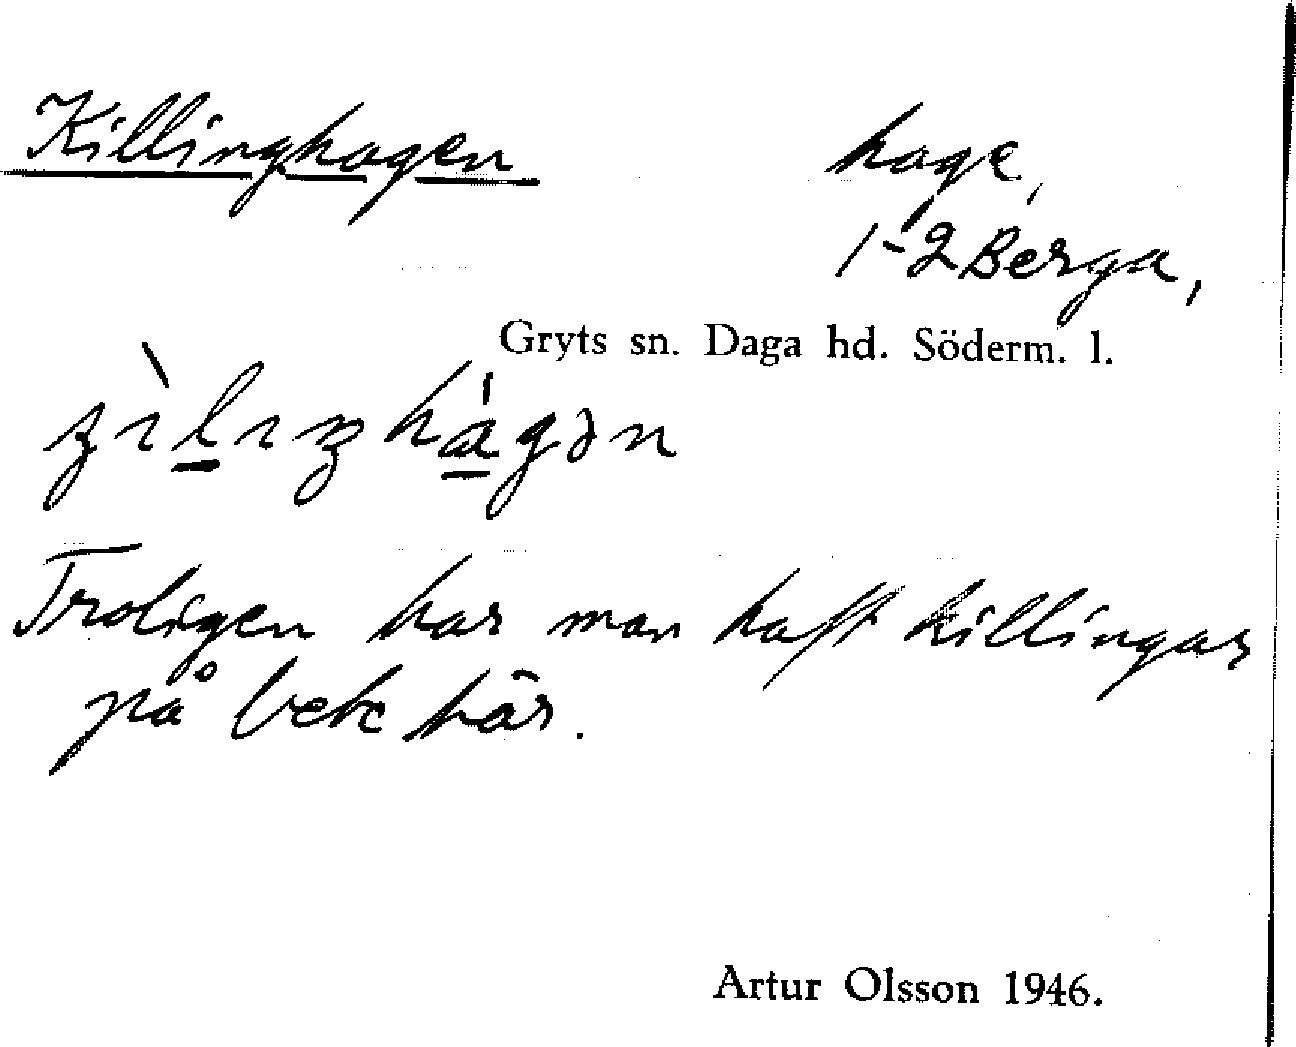 Killinghagen
hage,
1-2 Berga,
Gryts sn. Daga hd. Söderm. l.
Troligen har man haft killingar
på bete här.
Artur Olsson 1946.